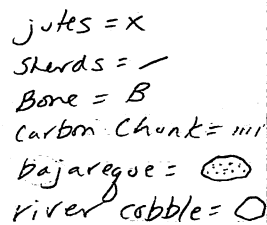 jutes = x
sherds = /
Bone = B
Carbon Chunk = ''''
bajareque =
river cobble =